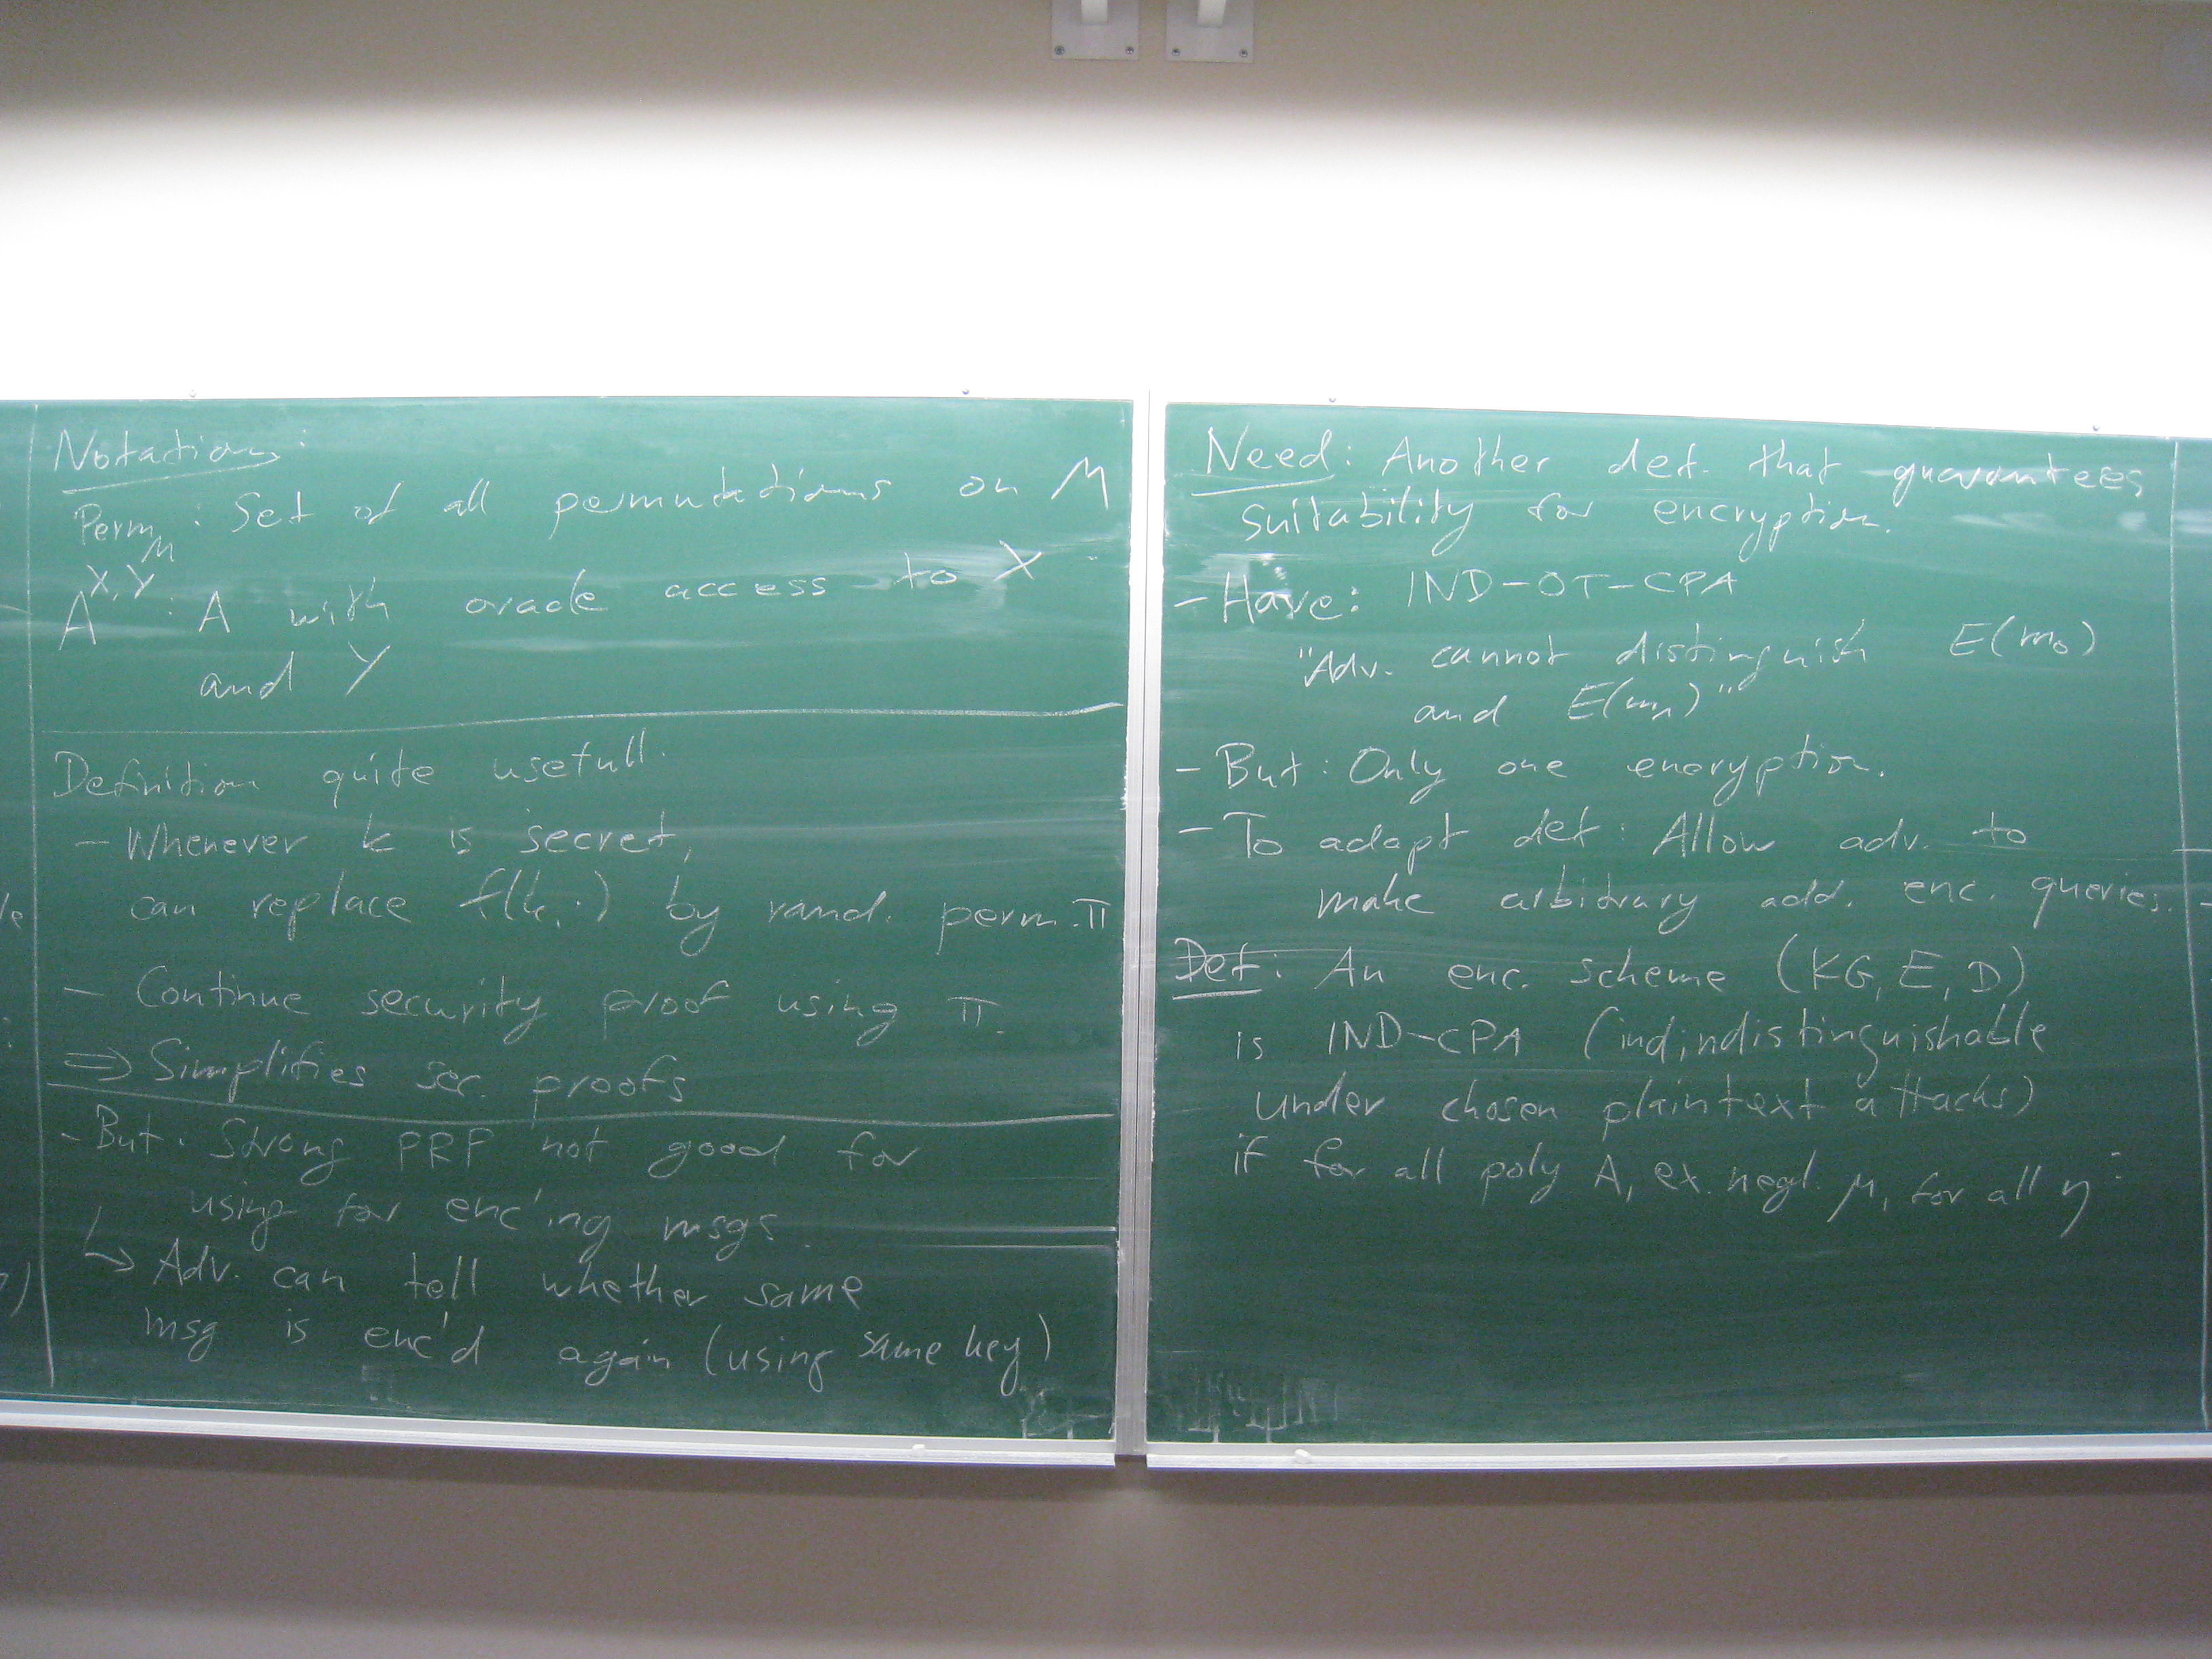 Notation:
Perm_M : Set of all permutations on M
A^{X,Y} : A with oracle access to X
and Y
Definition quite usefull.
- Whenever k is secret,
can replace f(k,·) by rand. perm. π
- Continue security proof using π.
⇒ Simplifies sec. proofs
- But: Strong PRP not good for
using for enc'ing msgs.
↳ Adv. can tell whether same
msg is enc'd again (using same key)
Need: Another def. that guarantees
suitability for encryption.
- Have: IND-OT-CPA
"Adv. cannot distinguish E(m₀)
and E(m₁)"
- But: Only one encryption.
- To adapt def: Allow adv. to
make arbitrary add. enc. queries.
Def: An enc. scheme (KG, E, D)
is IND-CPA (indindistinguishable
under chosen plaintext attacks)
if for all poly A, ex. negl. μ, for all η: